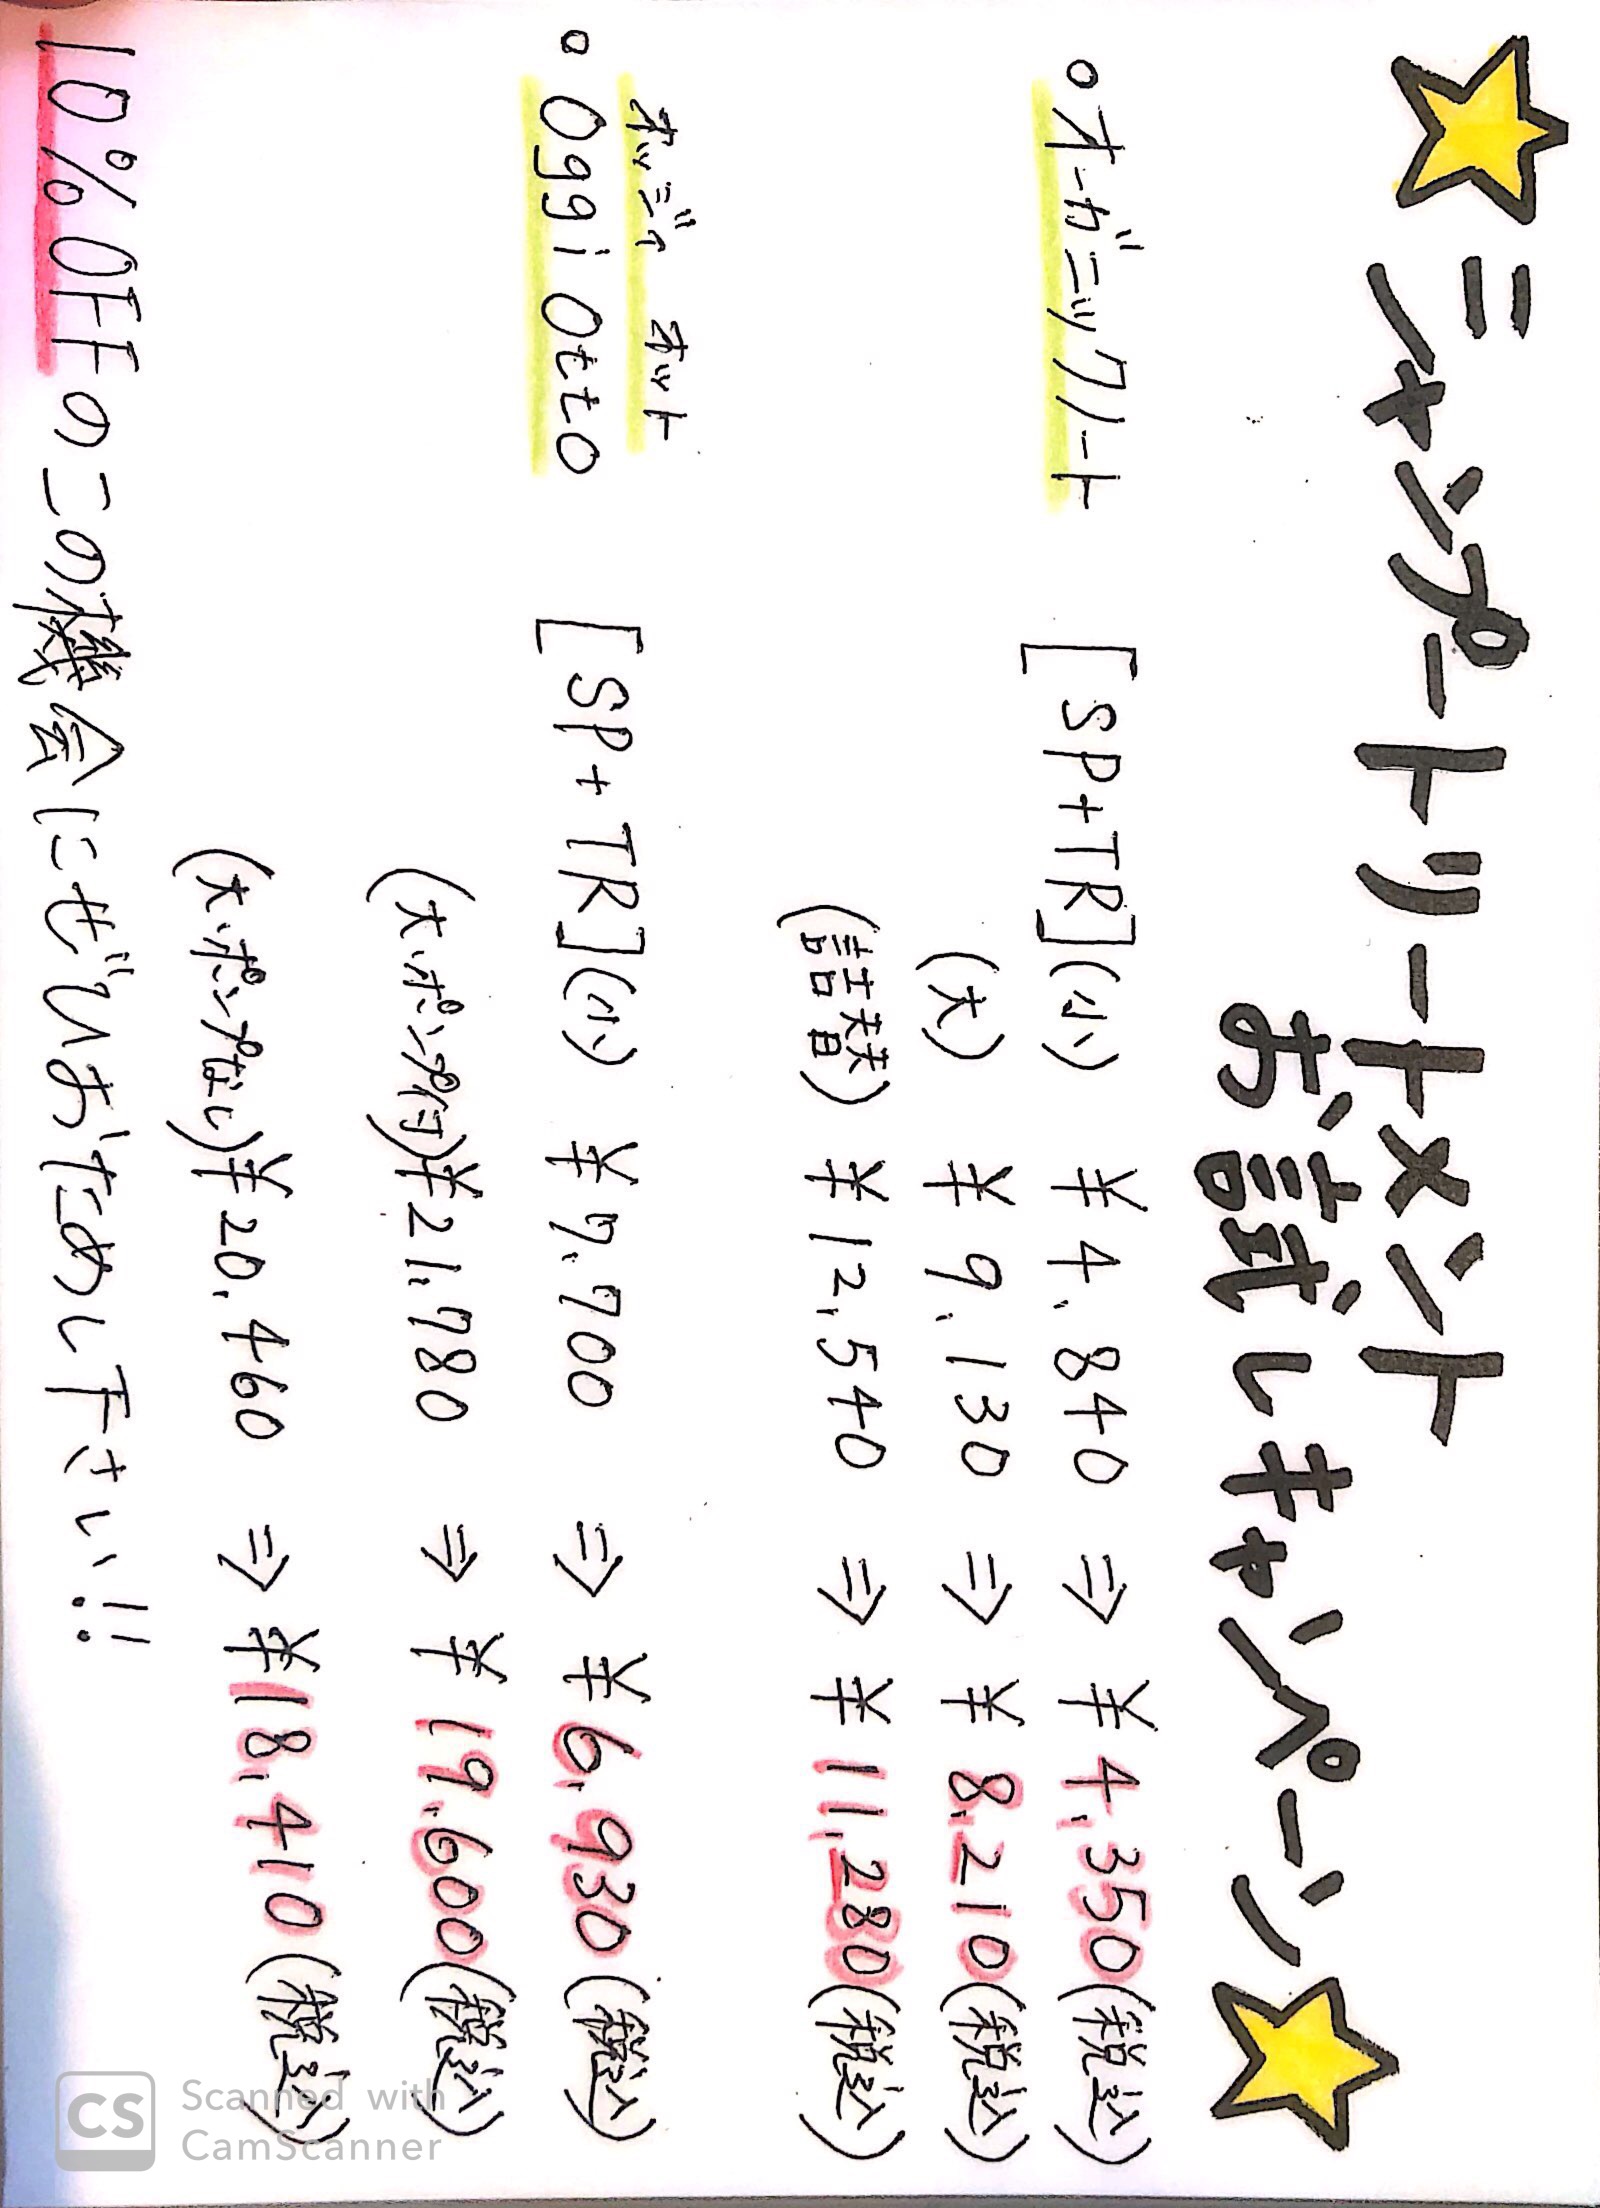 ☆シャンプートリートメント
お試しキャンペーン☆
○オーガニックノート [SP+TR](小) ¥4,840 ⇒ ¥4,350(税込)
(大) ¥9,130 ⇒ ¥8,210(税込)
(詰替) ¥12,540 ⇒ ¥11,280(税込)
オッジィ オット
○Oggi Otto [SP+TR](小) ¥7,700 ⇒ ¥6,930(税込)
(大・ポンプ付)¥21,780 ⇒ ¥19,600(税込)
(大・ポンプなし)¥20,460 ⇒ ¥18,410(税込)
10%OFFのこの機会にぜひおためし下さい!!
CS Scanned with
CamScanner